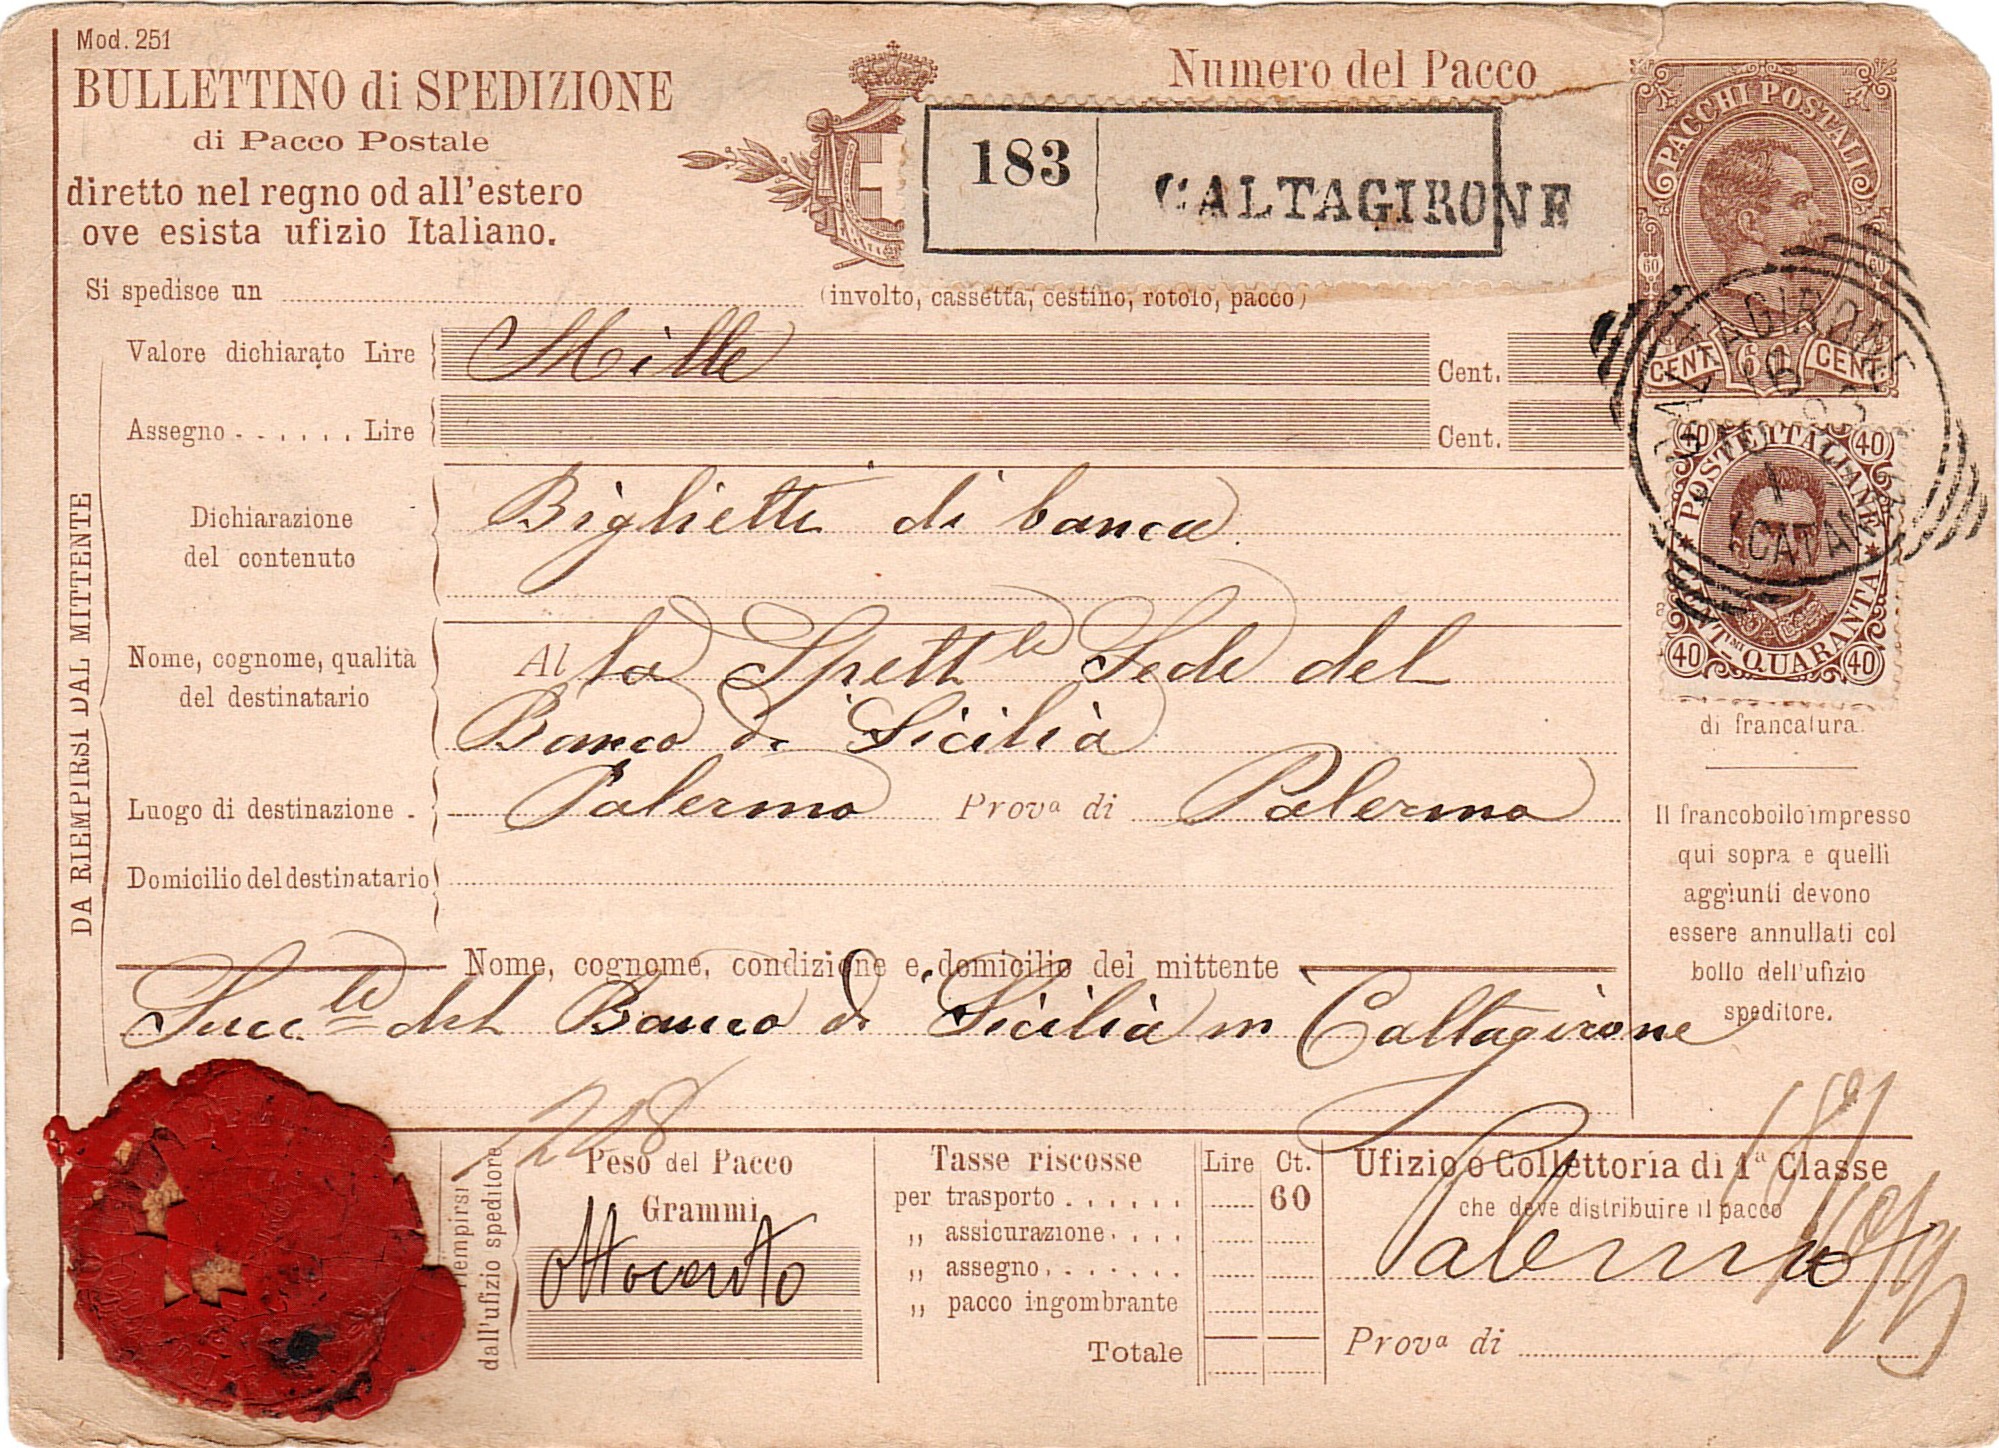 Mod. 251
BULLETTINO di SPEDIZIONE
di Pacco Postale
diretto nel regno od all'estero
ove esista ufizio Italiano.
Numero del Pacco
183 CALTAGIRONE
PACCHI POSTALI
60 60
CENT. 60 CENT.
Si spedisce un (involto, cassetta, cestino, rotolo, pacco)
Valore dichiarato Lire Mille Cent.
Assegno . . . . . . Lire Cent.
CALTAGIRONE
CATAN
40 40
POSTE ITALIANE
QUARANTA
40 40
DA RIEMPIRSI DAL MITTENTE
Dichiarazione
del contenuto
Biglietti di banca
Nome, cognome, qualità
del destinatario
Al la Spett.le Sede del
Banco di Sicilia
Luogo di destinazione . Palermo Prova di Palermo
Domicilio del destinatario
di francatura.
Il francobollo impresso
qui sopra e quelli
aggiunti devono
essere annullati col
bollo dell'ufizio
speditore.
Nome, cognome, condizione e domicilio del mittente
Succ.le del Banco di Sicilia in Caltagirone
riempirsi
dall'ufizio speditore
Peso del Pacco
Grammi
ottocento
Tasse riscosse Lire Ct.
per trasporto . . . . . . 60
„ assicurazione . . . .
„ assegno . . . . . . .
„ pacco ingombrante
Totale
Ufizio o Collettoria di 1a Classe
che deve distribuire il pacco
Palermo
Prova di